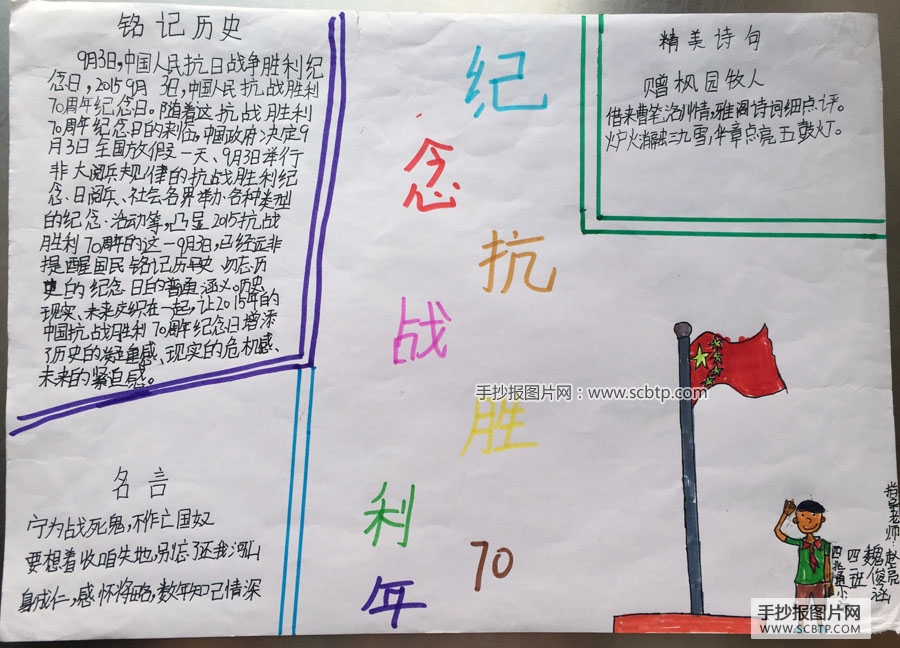 铭记历史
9月3日,中国人民抗日战争胜利纪
念日,2015年9月3日,中国人民抗战胜利
70周年纪念日。随着这抗战胜利
70周年纪念日的来临,中国政府决定9
月3日全国放假一天、9月3日举行
非大阅兵规律的抗战胜利纪
念日阅兵、社会各界举办各种类型
的纪念活动等,凸显2015抗战
胜利70周年的这一9月3日,已经远非
提醒国民铭记历史勿忘历
史的纪念日的普通涵义。历史、
现实、未来交织在一起,让2015年的
中国抗战胜利70周年纪念日增添
了历史的凝重感、现实的危机感、
未来的紧迫感。
名言
宁为战死鬼,不作亡国奴
要想着收咱失地,别忘了还我河山
身成仁,感怀将略,数年知己情深
纪
念
抗
战
胜
利
70
年
精美诗句
赠枫园牧人
借来曹笔洛川情,雅阁诗词细点评。
炉火消融三九雪,华章点亮五鼓灯。
手抄报图片网:www.scbtp.com
指导老师:
赵亮
魏俊涵
四二班
手抄报图片网
WWW.SCBTP.COM